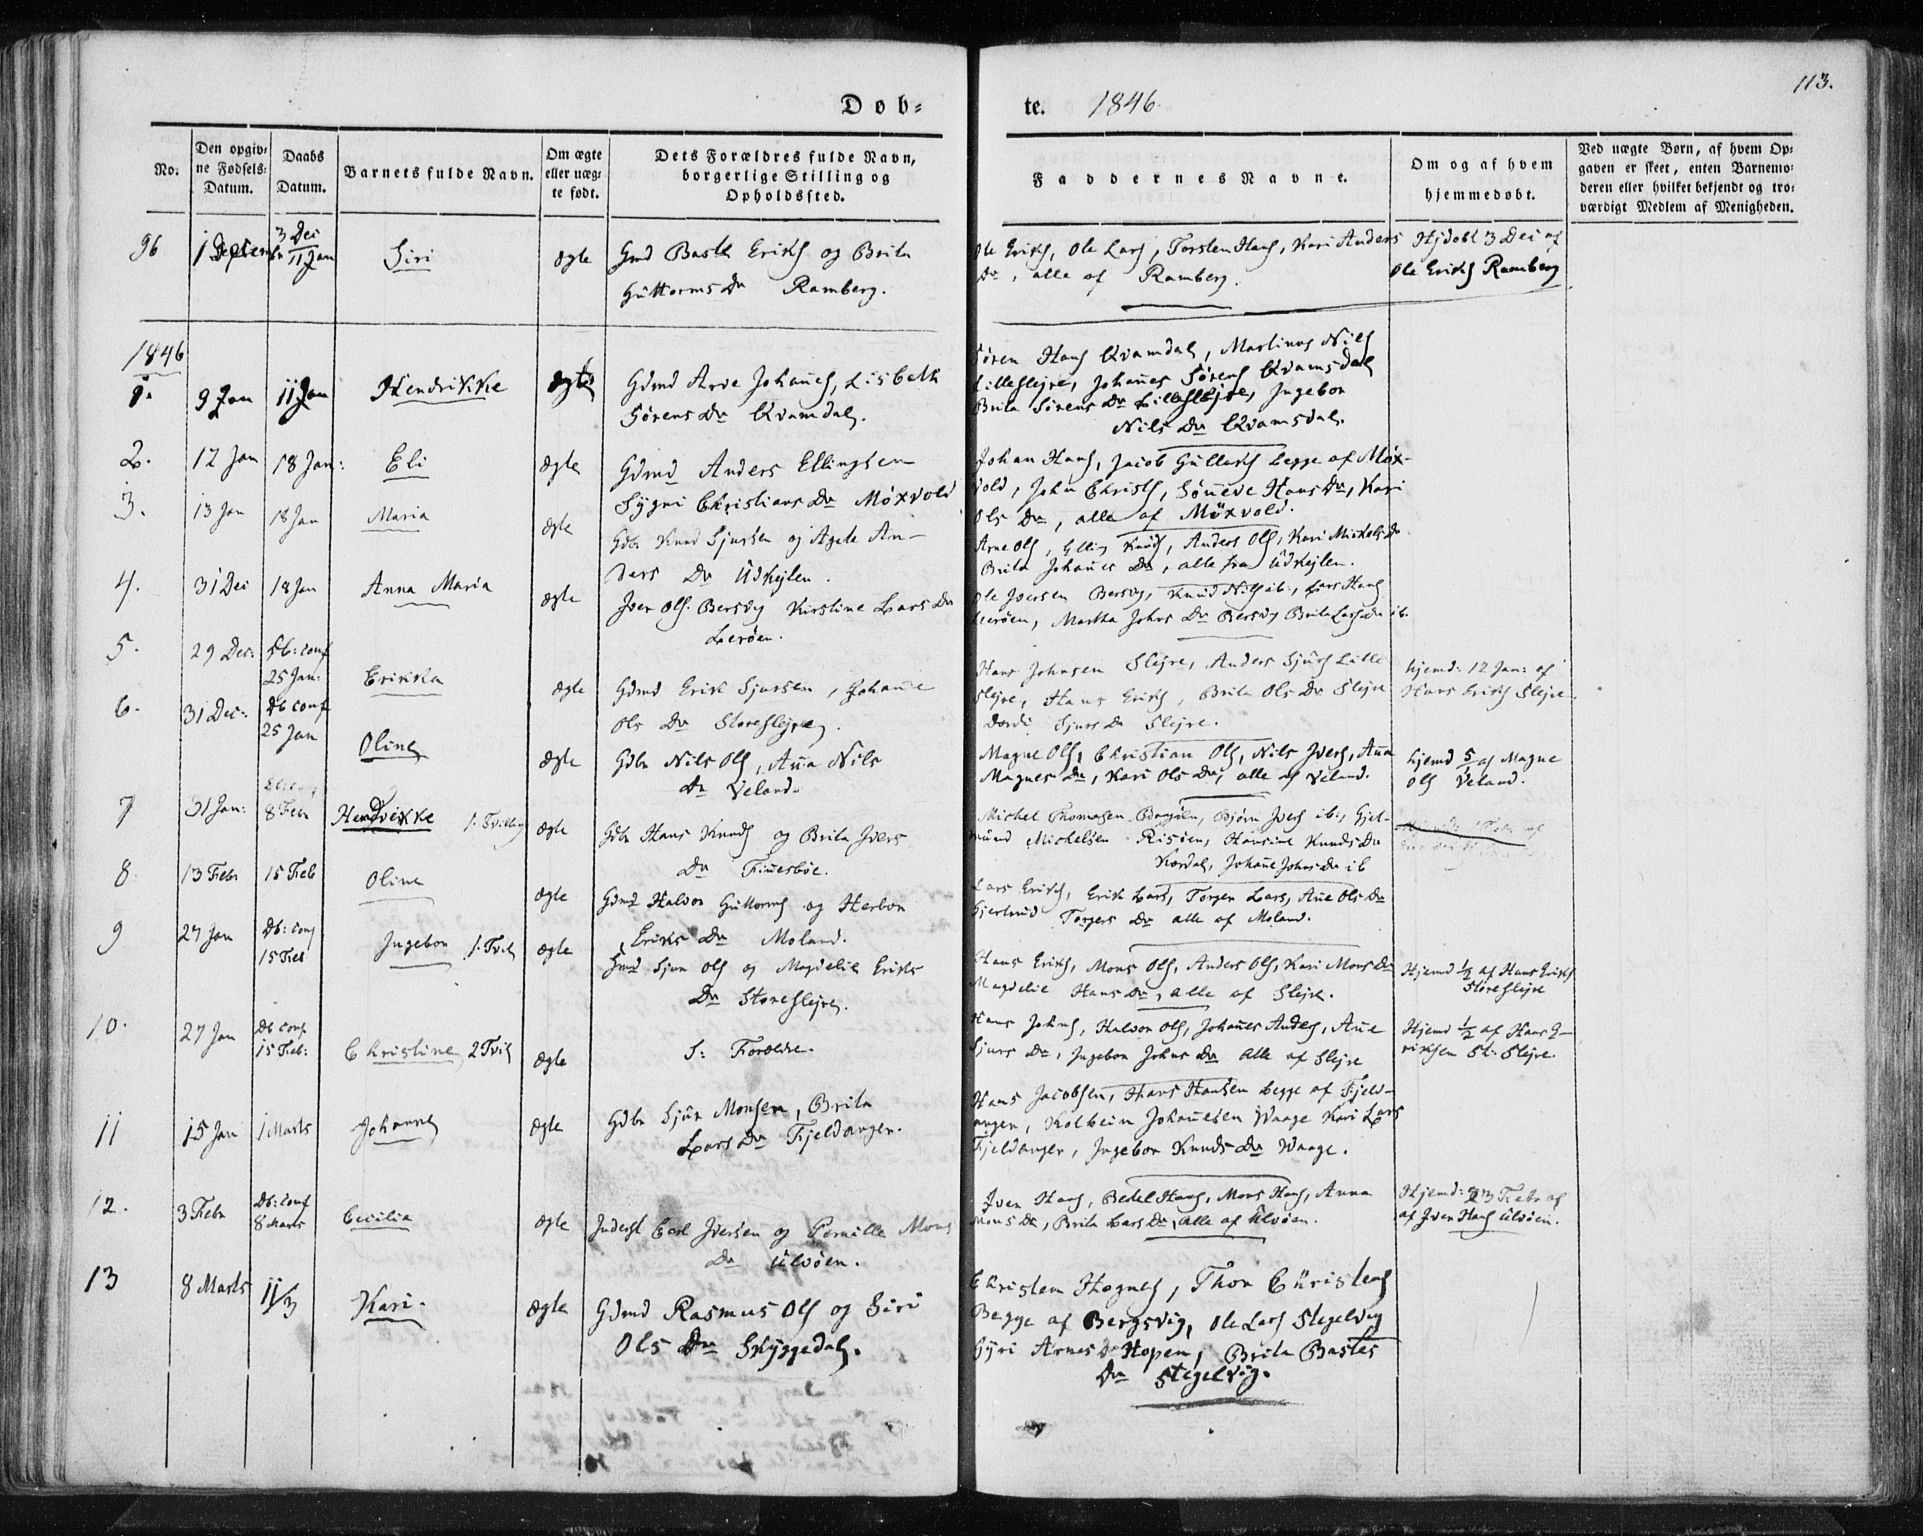 113.
Døb= te. 1846.
No.
Den opgiv=
ne Fødsels=
Datum.
Daabs
Datum.
Barnets fulde Navn.
Om ægte
eller uæg=
te født.
Dets Forældres fulde Navn,
borgerlige Stilling og
Opholdssted.
Faddernes Navne.
Om og af hvem
hjemmedøbt.
Ved uægte Børn, af hvem Op=
gaven er skeet, enten Barnemo=
deren eller hvilket bekjendt og tro=
værdigt Medlem af Menigheden.
96
3 Dei
11 Jan
Siri
ægte
Gmd Baste Eriks og Brita
Guttorms Dr Ramberg.
Ole Eriks, Ole Lars, Torsten Hans, Kari Anders
Dr, alle af Ramberg.
Hjdøbt 3 Dei af
Ole Eriks Ramberg
1846
1.
9 Jan
11 Jan
Hendrikke
ægte
Gdmd Arve Johañes, Lisbeth
Sørens Dr Kvamdal.
Søren Hans Kvamdal, Martinus Nils
Lilleslejre, Johañes Sørens Kvamsdal
Brita Sørens Dr Lilleslejre, Ingebor
Nils Dr Kvamsdal.
2.
12 Jan
18 Jan:
Eli
ægte
Gdmd Anders Ellingsen
Sygni Christians Dr Møxvold
Johan Hans, Jacob Gulleks begge af Møx-
vold, John Christs, Søñeve Hans Dr, Kari
Ols Dr, alle af Møxvold.
3.
13 Jan
18 Jan
Maria
ægte
Gdbr Knud Sjursen og Agete An-
ders Dr Udkejlen.
Arne Ols, Elling Knuds, Anders Ols, Kari Mickels Dr
Brita Johañes Dr, alle fra Udkejlen.
4.
31 Dei
18 Jan
Anna Maria
ægte
Iver Ols. Bersvig Kirstine Lars Dr
Lerøen.
Ole Iversen Bersvig, Knud Nils ib:, Lars Hans
Leerøen, Martha Johns Dr Bersvig Brite Lars Dr ib.
5.
29 Dec:
Db: conf
25 Jan:
Erikka
ægte
Gdmd Erik Sjursen, Johañe
Ols Dr Storeslejre.
Hans Johnsen Slejre, Anders Sjurs Lille
slejre, Hans Eriks, Brita Ols Dr Slejre
Dordi Sjurs Dr Slejre.
hjemd: 12 Jan: af
Hans Eriks Slejre.
6.
31 Dec:
Db conf
25 Jan
Oline
ægte
Gdbr Nils Ols, Aña Nils
Dr Veland.
Magne Ols, Christian Ols, Nils Ivers, Aña
Magnes Dr, Kari Ols Dr, alle af Veland.
hjemd 5/1 af Magne
Ols Veland.
7
31 Jan:
8 Febr
Hendrikke 1. Tvilling
ægte
Gdbr Hans Knuds og Brita Ivers
Dr Fiñesbøe.
Michel Thomasen, Bjørn Ivers ib:, Gjet-
mund Michelsen Risøen, Hansine Knuds Dr
Kordal, Johañe Johns Dr ib
8.
13 Febr
15 Feb
Oline
ægte
Gdmd Halvor Guttorms og Herbor
Eriks Dr Moland.
Lars Eriks, Erik Lars, Torger Lars, Añe Ols Dr
Gjertrud Torgers Dr alle af Moland.
9
27 Jan
Db: conf
15 Feb
Ingebor 1. Tvil
ægte
Gmd Sjur Ols og Magdelie Eriks
Dr Storeslejre.
Hans Eriks, Mons Ols, Anders Ols, Kari Mons Dr
Magdelie Hans Dr, alle af Slejre.
Hjemd 1/2 af Hans Eriks
Storeslejre
10.
27 Jan
Db conf
15 Feb:
Christine, 2 Tvil
ægte
S: Forældre.
Hans Johns, Halvor Ols, Johañes Anders, Añe
Sjurs Dr, Ingebor Johns Dr alle af Slejre
Hjemd 1/2 af Hans E-
riksen St: Slejre.
11
15 Jan
1 Marts
Johanne
ægte
Gdbr Sjur Monsen, Brita
Lars Dr Fjeldanger.
Hans Jacobsen, Hans Hansen begge af Fjeld-
anger, Kolbein Johañesen Waage Kari Lars
Fjeldanger, Ingebor Knuds Dr Waage.
12.
3 Febr
Db: conf
8 Marts
Cecilia
ægte
Inderst Carl Iversen og Pernille Mons
Dr Ulvøen.
Iver Hans, Bedel Hans, Mons Hans, Anna
Mons Dr, Brita Lars Dr, alle af Ulvøen.
Hjemd: 23 Febr af
af Iver Hans Ulvøen.
13
8 Marts
11/3
Kari.
ægte
Gdmd Rasmus Ols og Siri
Ols Dr Skyggedal.
Christen Hognes, Thor Christens
Begge af Bergsvig, Ole Lars Stegelvig
Gyri Arnes Dr Hopen, Brita Bastes
Dr Stegelvig.